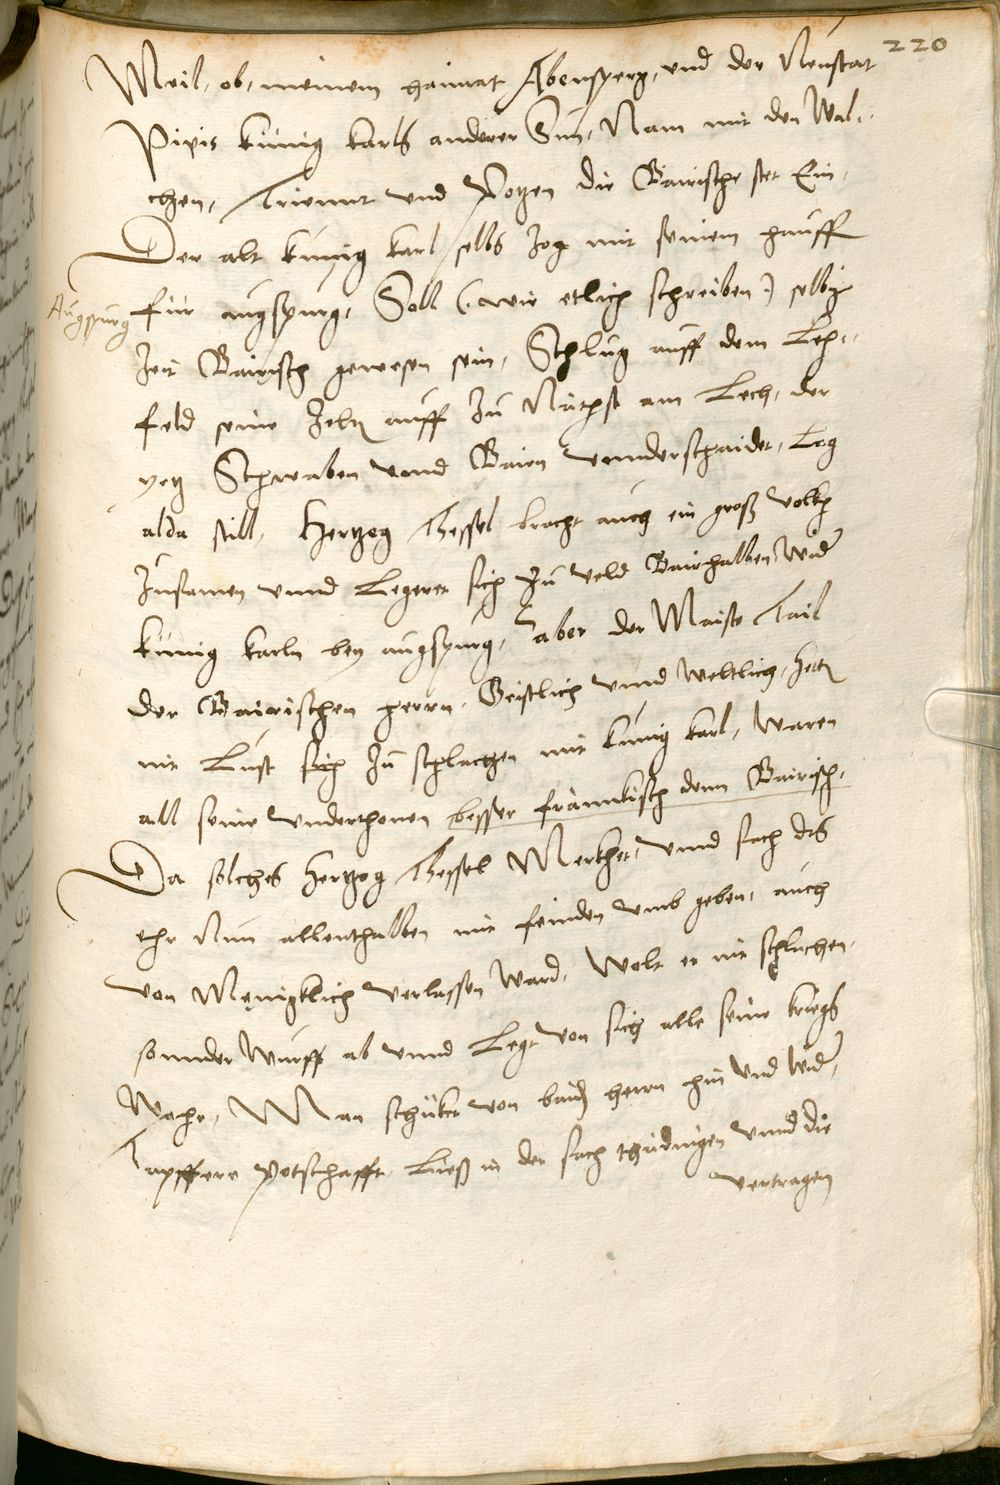 220
Meil, ob, meinem haimat Abensperg, und der Neustat
Pipis künig karls anderer Sun, Nam mit den Wal-
chen, Triennt und Potzen die Bairische stet Ein,
Der alt künig karl selbs Zog mit seinem hauff
Augspurg
für augspurg, Soll (: wie etlich schreiben :) selbiger
Zeit Bairisch gewesen sein, Schlug auff dem Lech-
feld seine Zelt auff Zu Nächst am Lech, der
yetz Schwaben vnnd Baiern vnnderschaidet, Lag
alda still, Hertzog Thessel bracht auch ein groß volkh
Zusamen vnnd Legeret sich Zu veld Bairhalben wider
künig karln bey augspurg, aber der Maiste Tail
der Bairischen herrn, Geistlich vnnd weltlich, hett
nit Lust sich Zu schlachen mit künig karl, Waren
all seine vnderthonen besser fränkisch denn Bairisch,
Da solches Hertzog Thessel Merkhet, vnnd sach das
ehr Nun allenthalben mit feinden vmb geben, auch
von Menigklich verlassen Ward, Wolt er nit schlachen,
sonnder Wurff ab vnnd Legt von sich alle seine kriegs
Wehr, Man schikte von baid herrn hin vnd wider,
Tapffere Potschafft, Liess in der sach thädingen vnnd die
vertragen